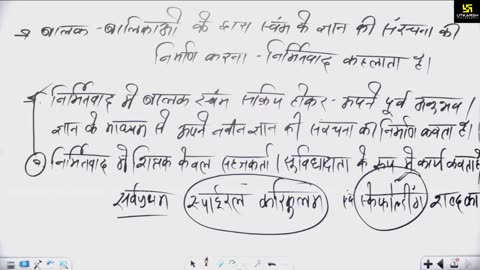 → बालक - बालिकाओ के द्वारा स्वंम के ज्ञान की संरचना का
निर्माण करना - निर्मितवाद कहलाता है।
निर्मितवाद में बालक स्वंम सक्रिय होकर - अपने पूर्व अनुभव /
ज्ञान के माध्यम से अपने नवीन ज्ञान की संरचना का निर्माण करता है।
निर्मितवाद में शिक्षक केवल सहजकर्ता / सुविधादाता के रूप में कार्य करता है
सर्वप्रथम स्पाईरल करिकुलम एवं स्केफोल्डिंग शब्द का
UTKARSH